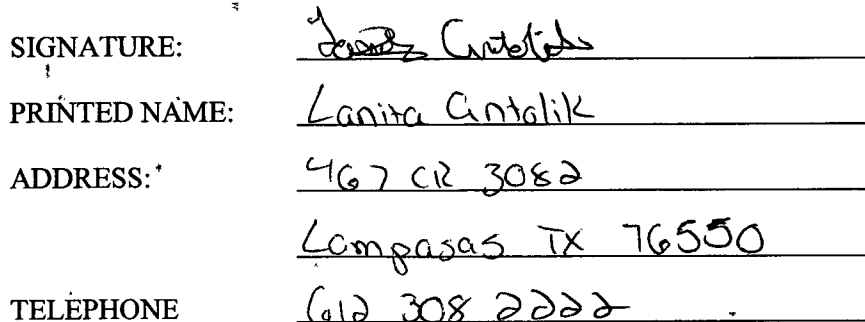 SIGNATURE:
PRINTED NAME: Lanita Antalik
ADDRESS: 467 CR 3082
Lampasas TX 76550
TELEPHONE 612 308 2222